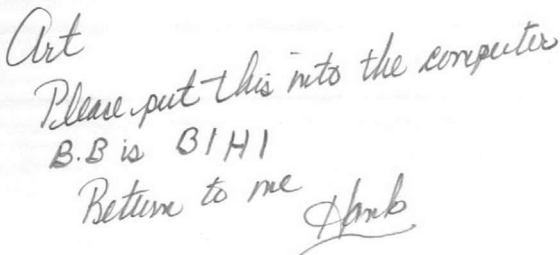 Art
Please put this into the computer
B.B is B1H1
Return to me
Hank